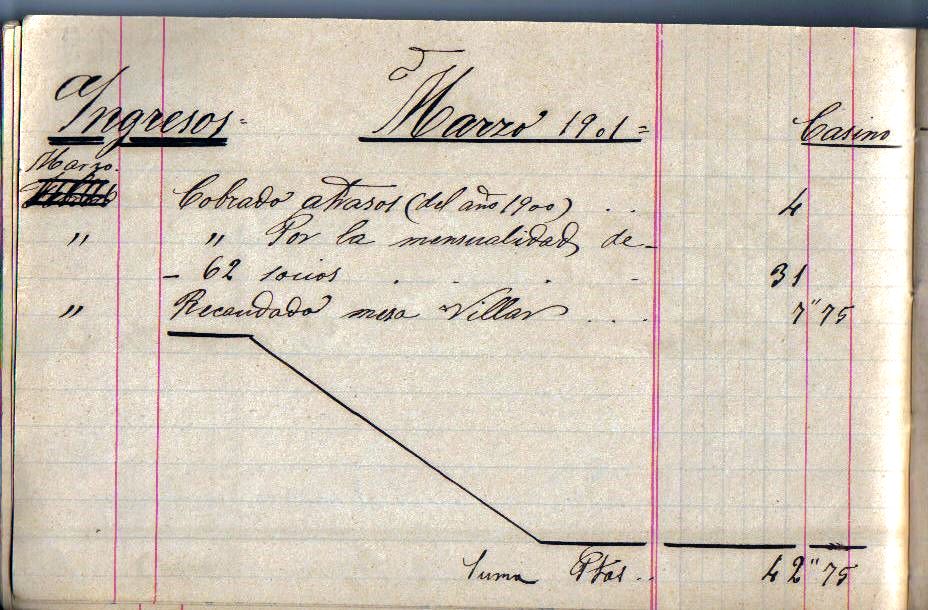 Ingresos= Marzo 1901= Casino
Marzo.
Cobrado atrasos (del año 1900) . . 4
" " Por la mensualidad de-
- 62 socios . . . - 31
" Recaudado mesa Villar . . . 7"75
Suma Ptas. . 42"75